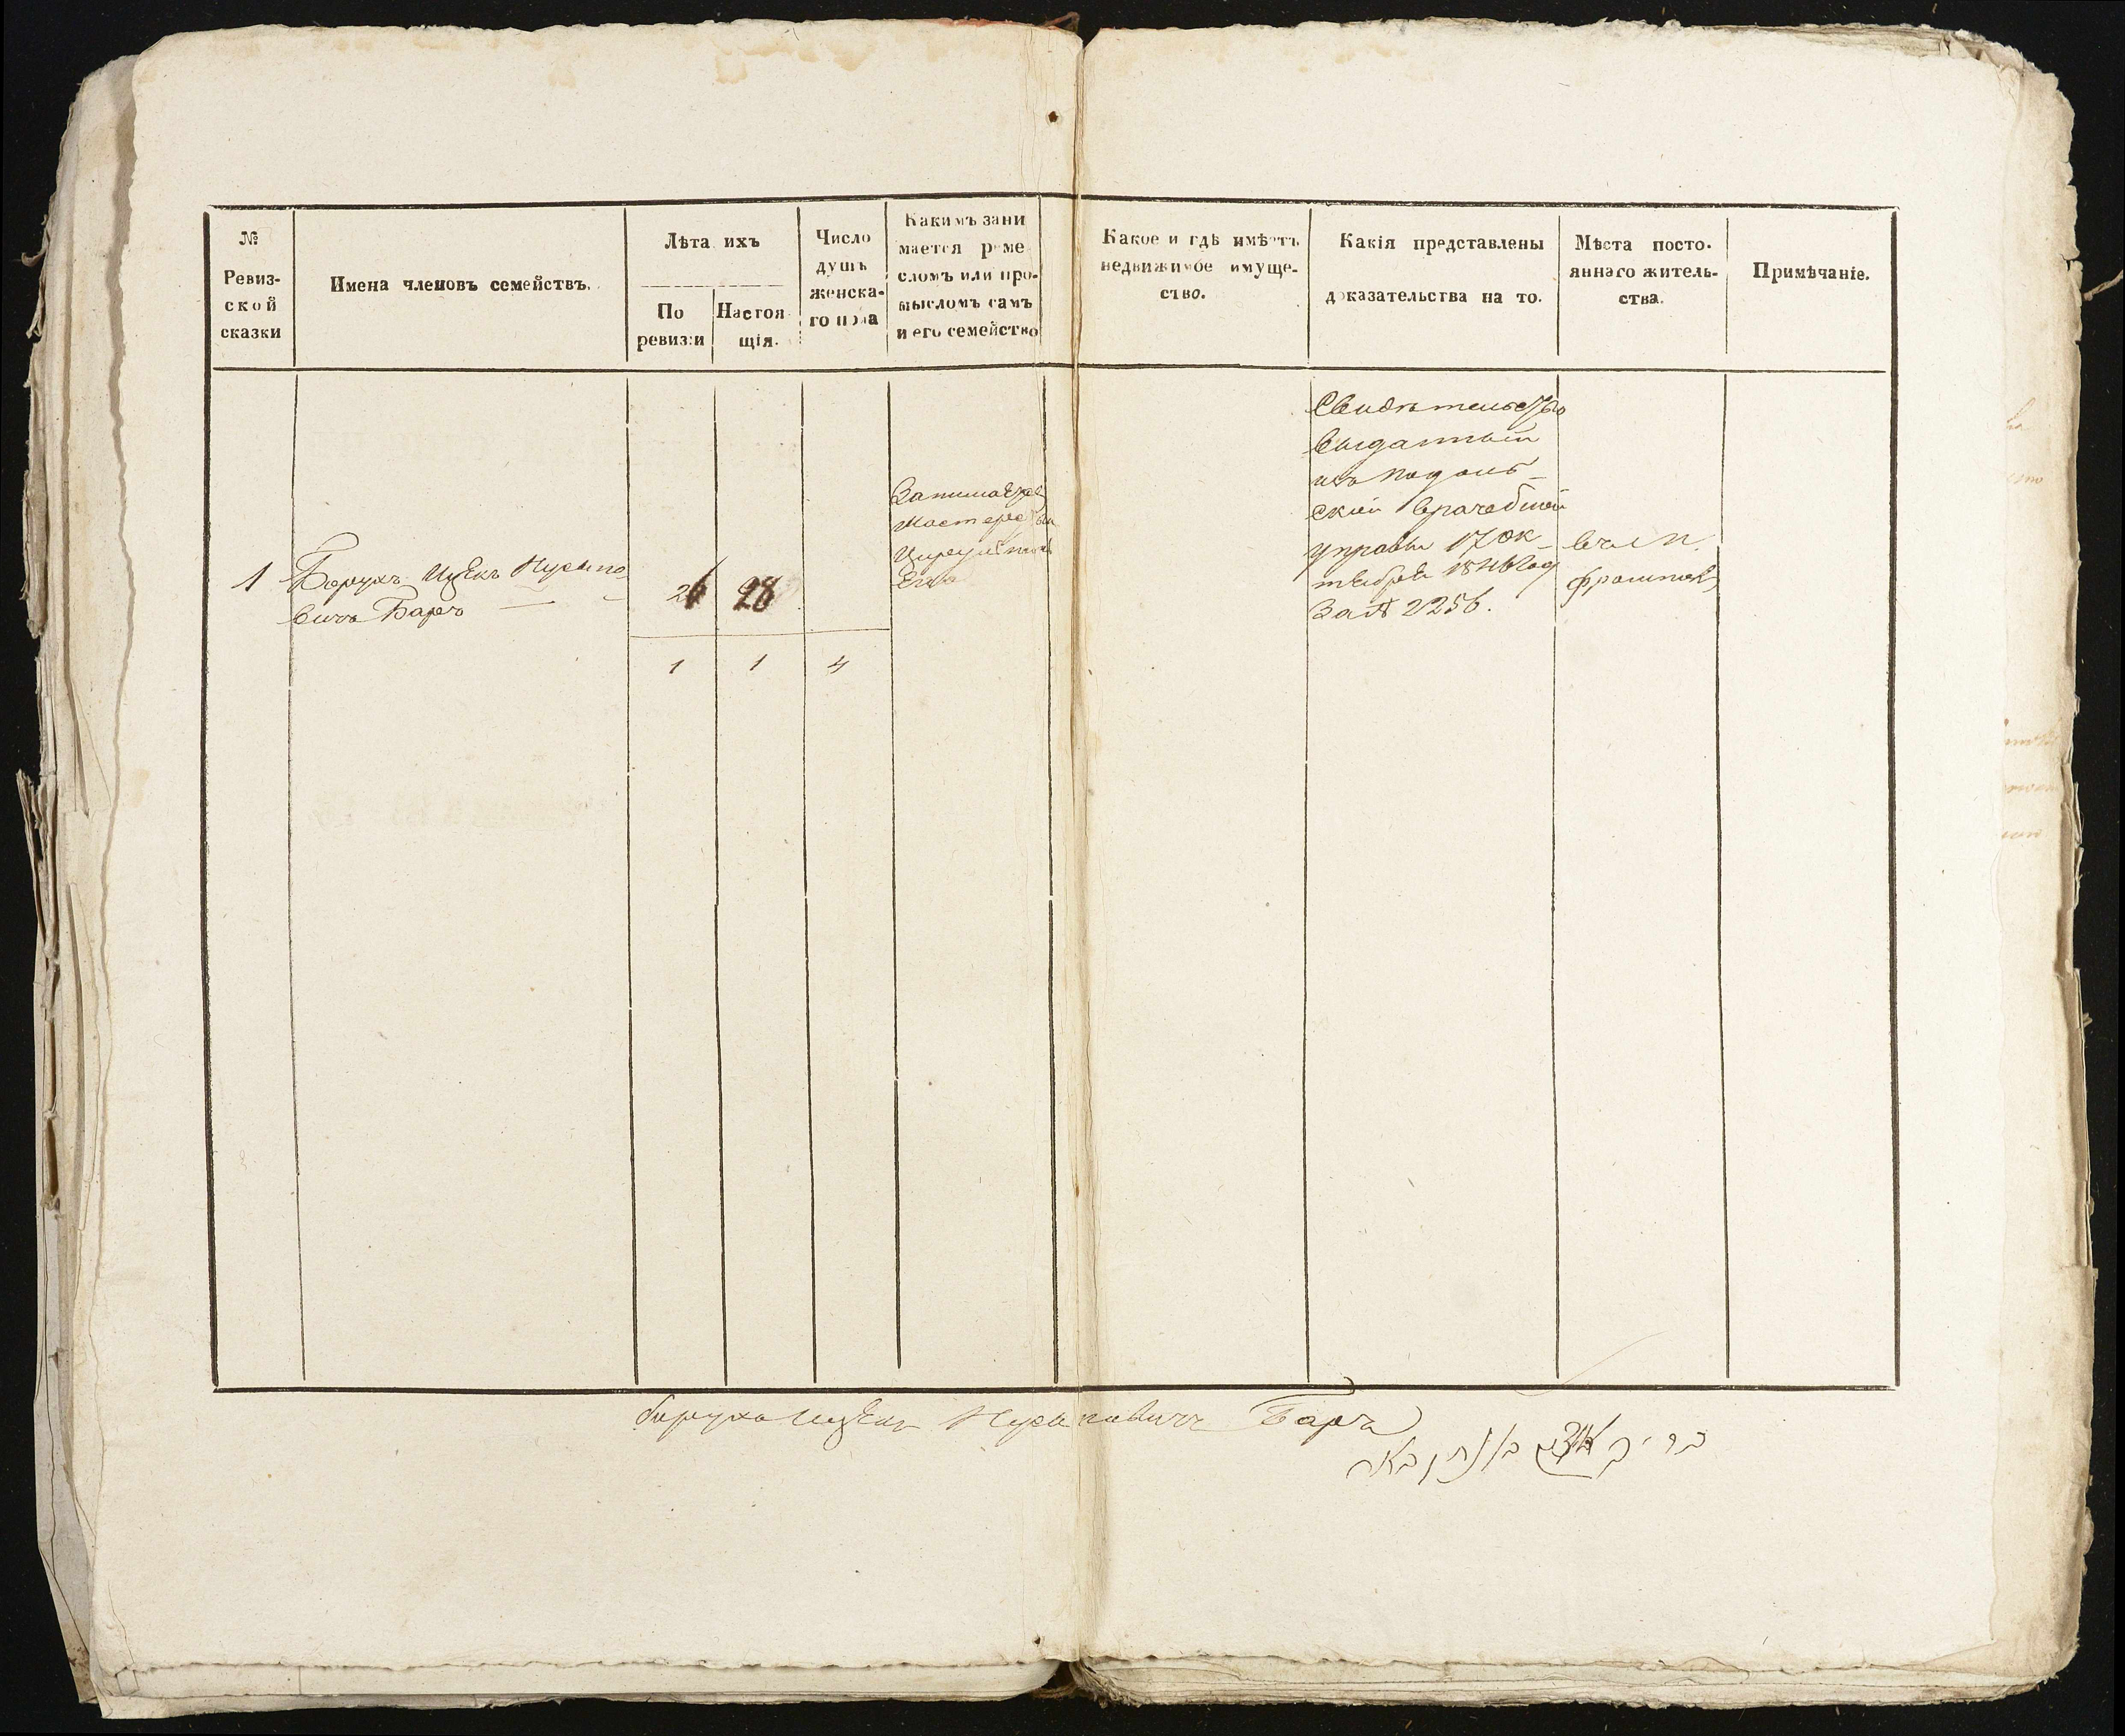 №
Ревиз-
ской
сказки
Имена членовъ семействъ.
Лѣта ихъ
По
ревизіи
Настоя
щія.
Число
душъ
женска-
го пола
Какимъ зани
мается реме
сломъ или про-
мысломъ самъ
и его семейство
Какое и гдѣ имѣетъ
недвижимое имуще-
ство.
Какія представлены
доказательства на то.
Мѣста посто-
яннаго житель-
ства.
Примѣчаніе.
1
Борухъ Ицекъ
вичъ Баръ
26
28
Занимается
мастерства
Свидѣтельство
выданный
изъ Подоль-
ской врачебной
управы 17 ок-
тебре
За № 2256.
1
1
4
борухъ Ицекъ Баръ